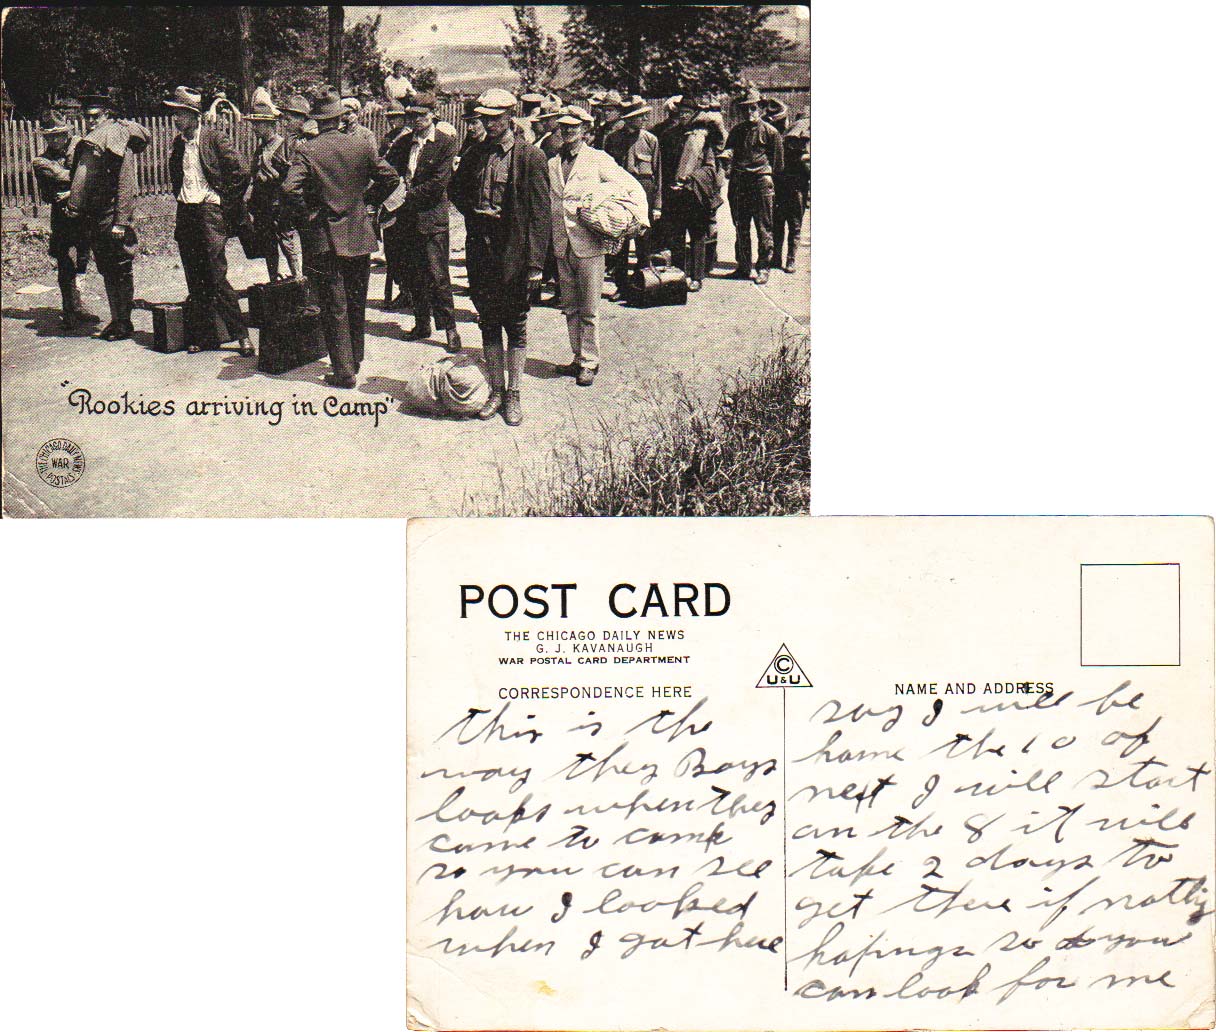 "Rookies arriving in Camp"
THE CHICAGO DAILY NEWS
WAR
POSTALS
POST CARD
THE CHICAGO DAILY NEWS
G. J. KAVANAUGH
WAR POSTAL CARD DEPARTMENT
CORRESPONDENCE HERE
this is the
way they Boys
looks when they
come to camp
so you can see
how I looked
when I got here
C
U & U
NAME AND ADDRESS
say I will be
home the 10 of
next I will start
on the 8 it will
take 2 days to
get there if nothig
hapings so you
can look for me